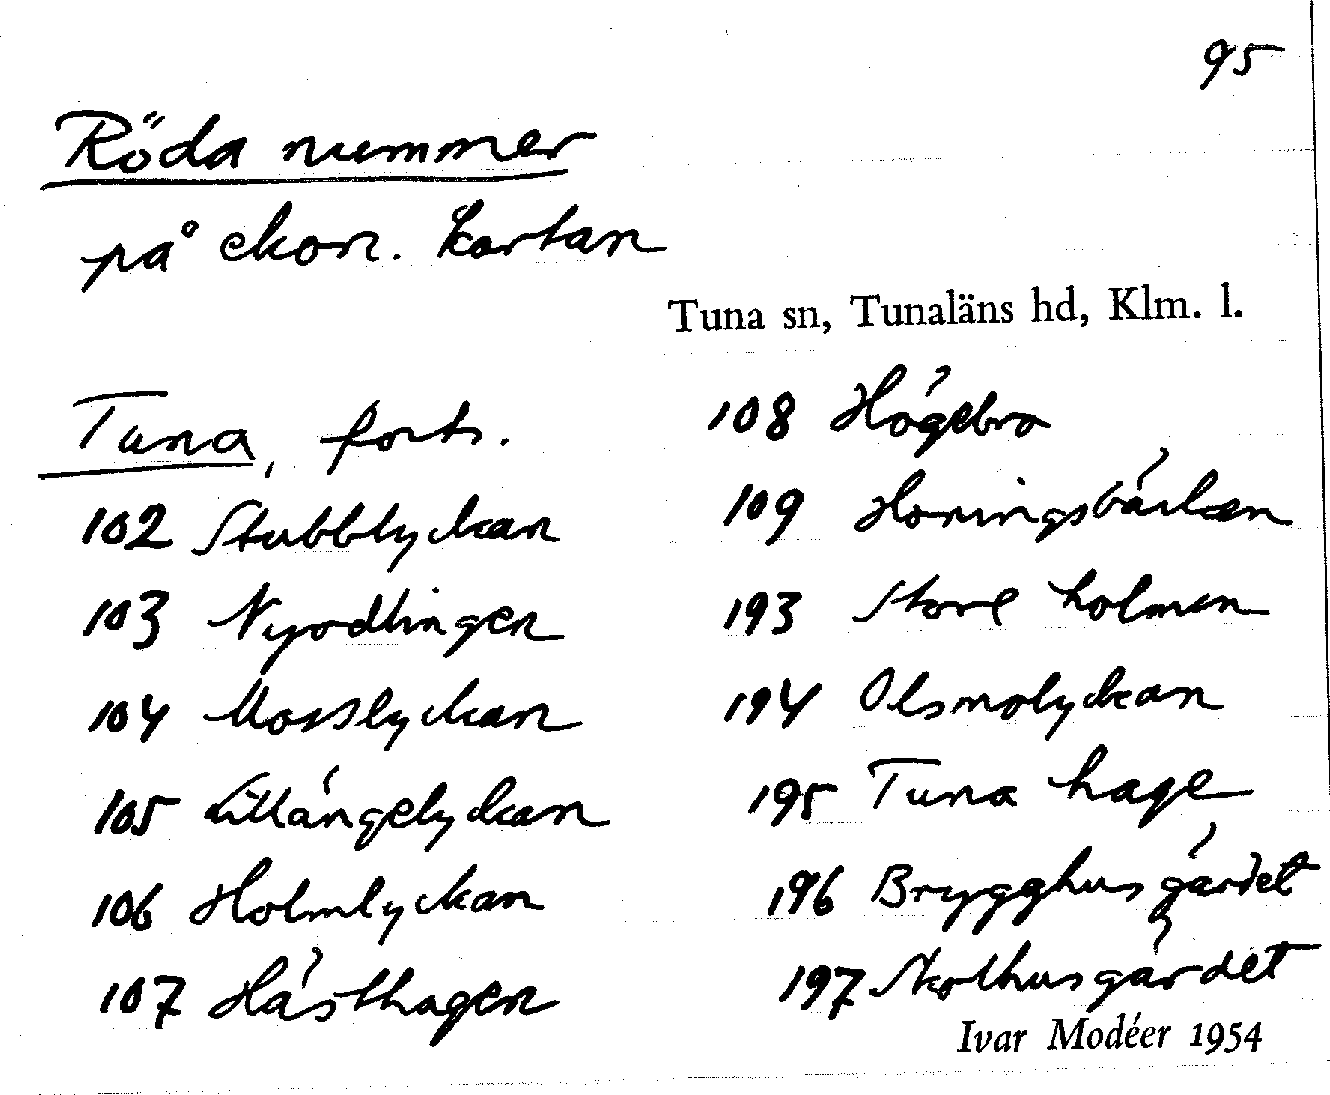 95
Röda nummer
på ekon. kartan
Tuna sn, Tunaläns hd, Klm. l.
Tuna, forts.
102 Stubblyckan
103 Nyodlingen
104 Mosslyckan
105 Lillängelyckan
106 Holmlyckan
107 Hästhagen
108 Högebro
109
193 Store holmen
194 Olsmolyckan
195 Tuna hage
196 Brygghusgärdet
197
Ivar Modéer 1954